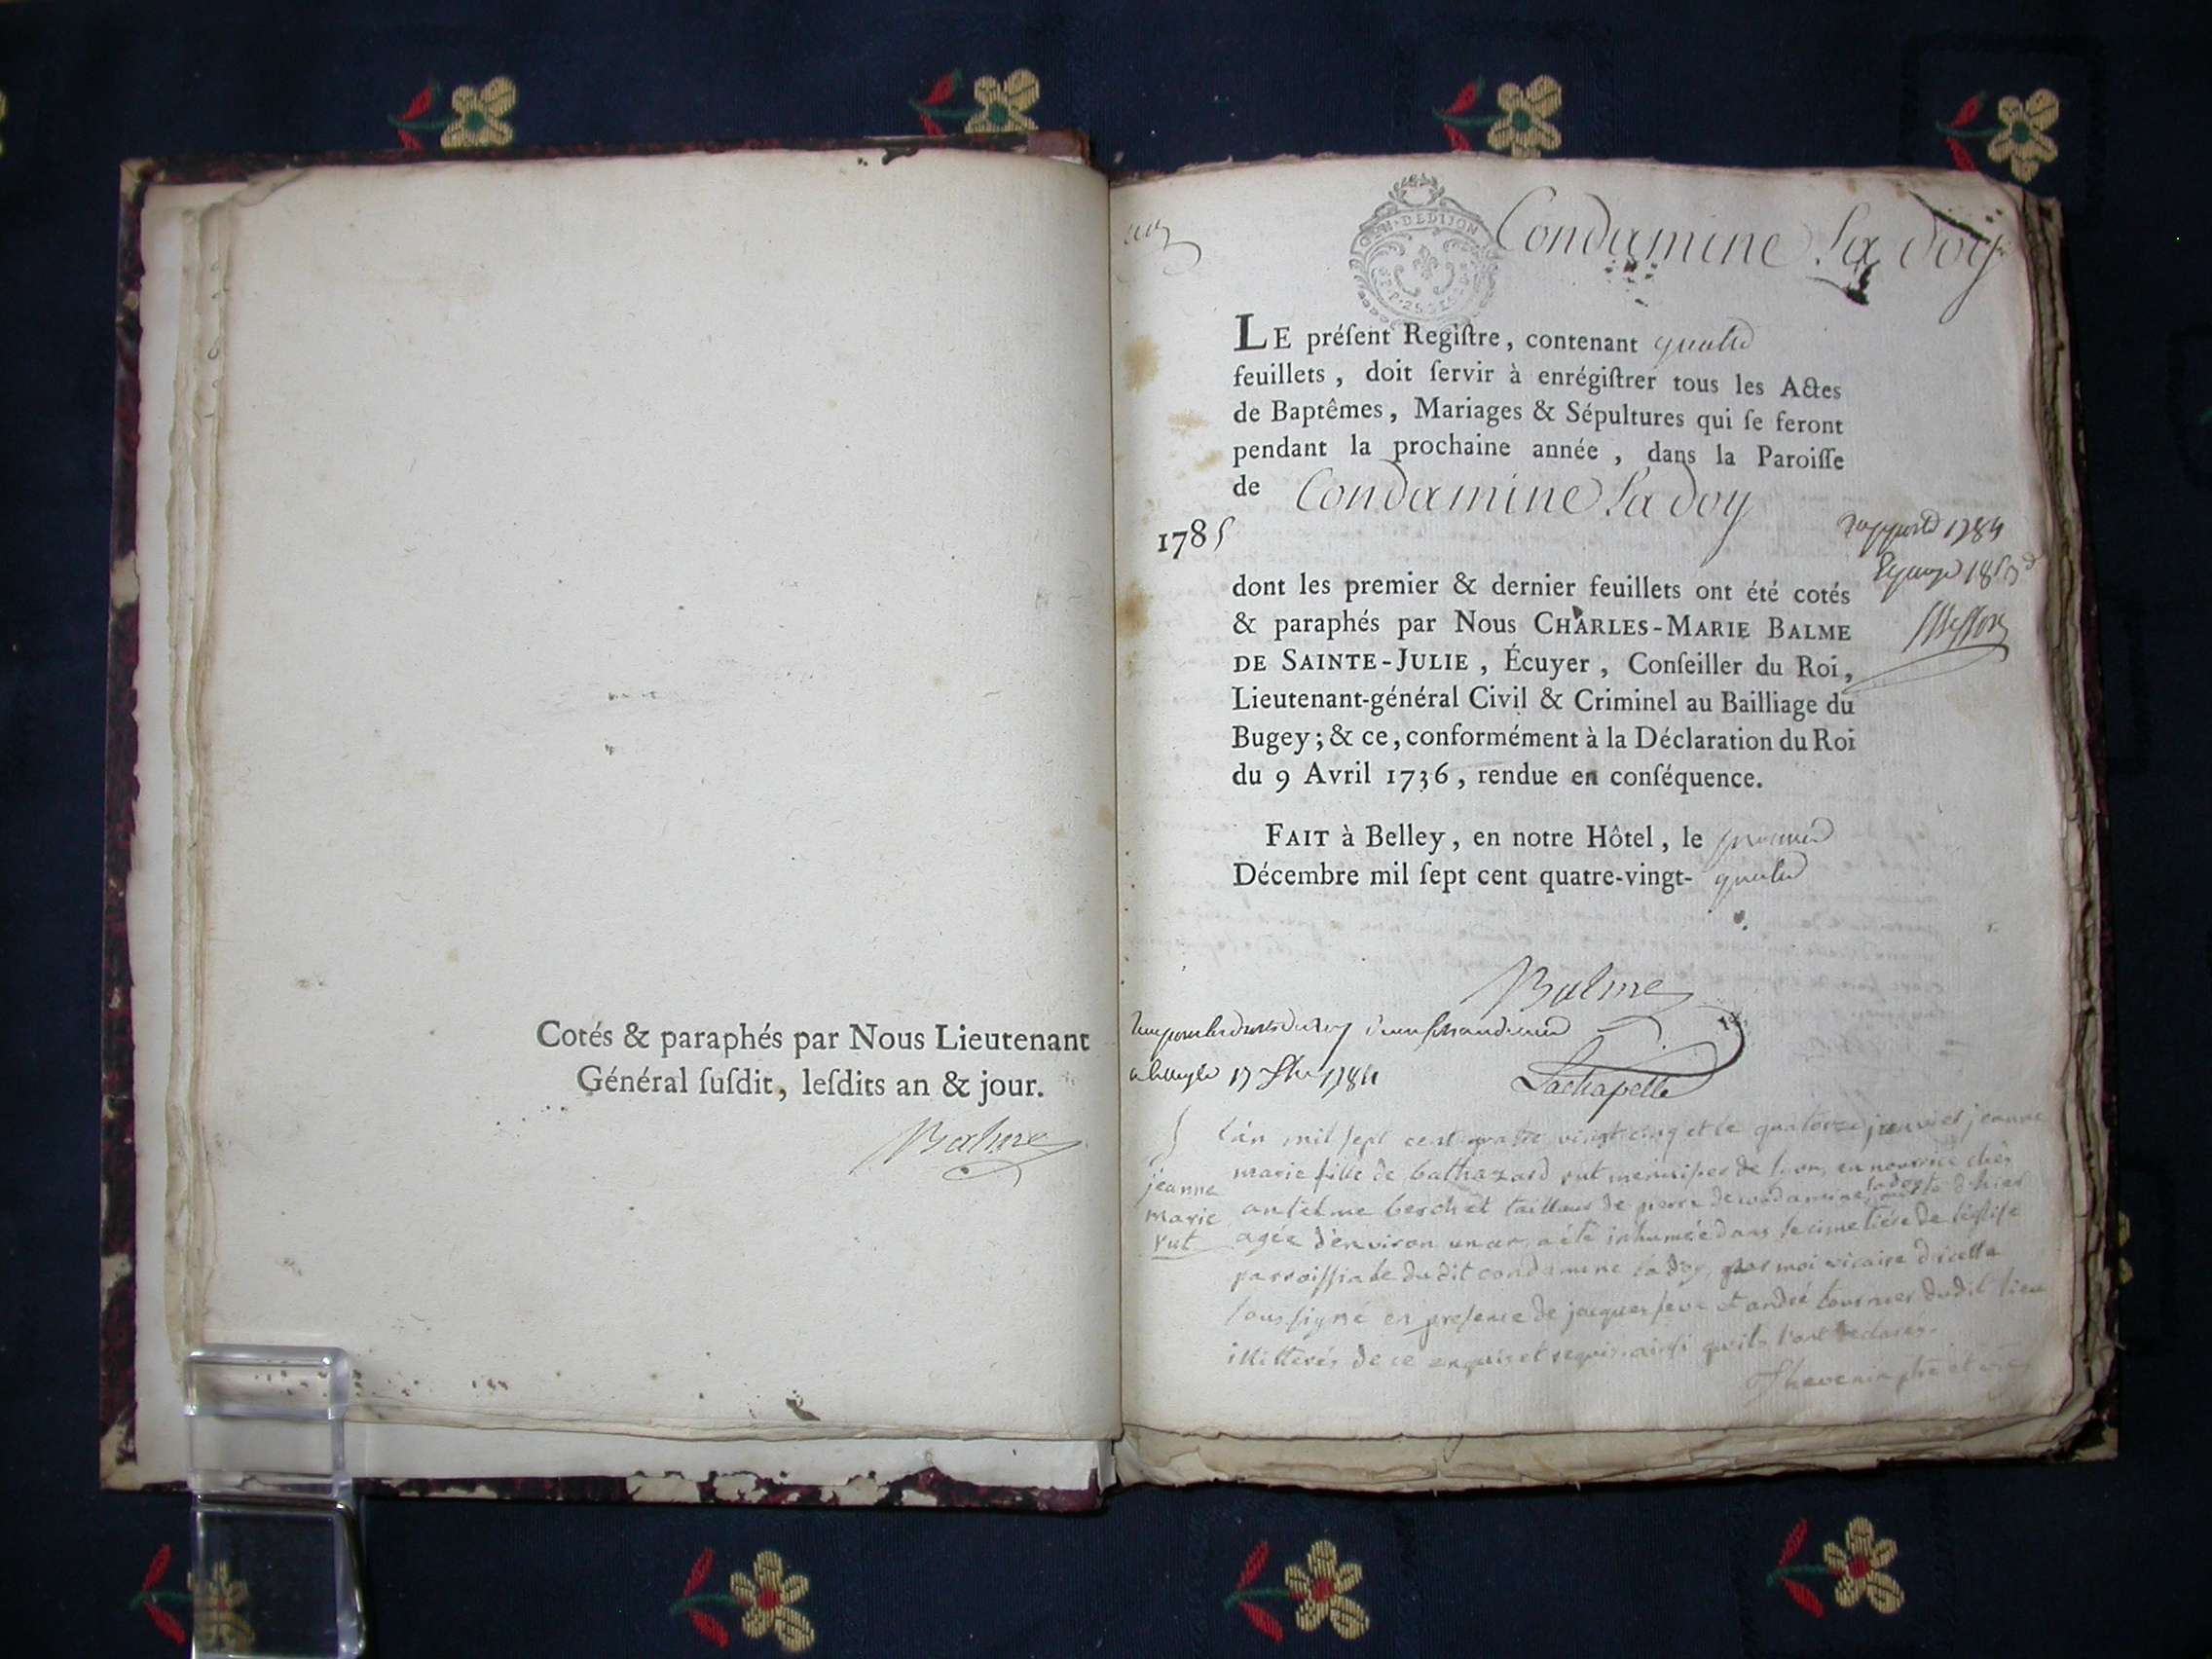 Cotés & paraphés par Nous Lieutenant
Général ſuſdit, leſdits an & jour.
Balme
GEN. DE DIJON
Condamine La doy
LE préſent Regiſtre, contenant quatre
feuillets, doit ſervir à enrégiſtrer tous les Actes
de Baptêmes, Mariages & Sépultures qui ſe feront
pendant la prochaine année, dans la Paroiſſe
de Condamine La doy
1785
dont les premier & dernier feuillets ont été cotés
& paraphés par Nous CHARLES-MARIE BALME
DE SAINTE-JULIE, Écuyer, Conſeiller du Roi,
Lieutenant-général Civil & Criminel au Bailliage du
Bugey; & ce, conformément à la Déclaration du Roi
du 9 Avril 1736, rendue en conſéquence.
1784
FAIT à Belley, en notre Hôtel, le premier
Décembre mil ſept cent quatre-vingt- quatre
Balme
17 1784
Lachapelle
jeanne
marie
rut
l'an mil sept cent quatre vingt cinq et le quatorze janvier jeanne
marie fille de balthazard rut menuisier de lyon, en nourrice chés
antelme berchet tailleur de pierre de condamine ladoy morte d'hier
agée d'environ un an, a été inhumée dans le cimetiére de l'église
parroissiale dudit condamine ladoy, par moi vicaire d'icelle
soussigné en presence de jacques et andré tournier dudit lieu
illitterés de ce enquis et requis ainsi qu'ils l'ont declarés.
Thevenin